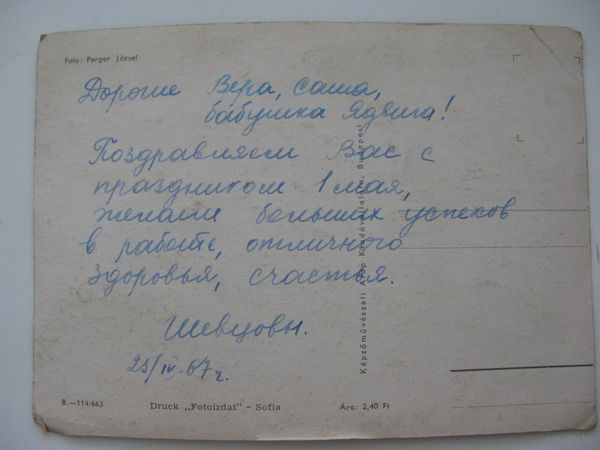 Foto: Perger József
Дорогие Вера, Саша,
бабушка Ядвига!
Поздравляем Вас с
праздником 1 мая,
желаем больших успехов
в работе, отличного
здоровья, счастья.
Шевцовы.
25/IV-67 г.
Képzőművészeti Alap Kiadóvállalata, Budapest
B.—114/663
Druck „Fotoizdat" - Sofia
Ára: 2,40 Ft